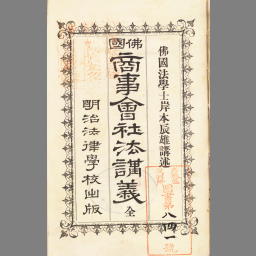 佛國法學士岸本辰雄講述
佛國
商事會社法講義 全
明治法律學校出版
八四一號